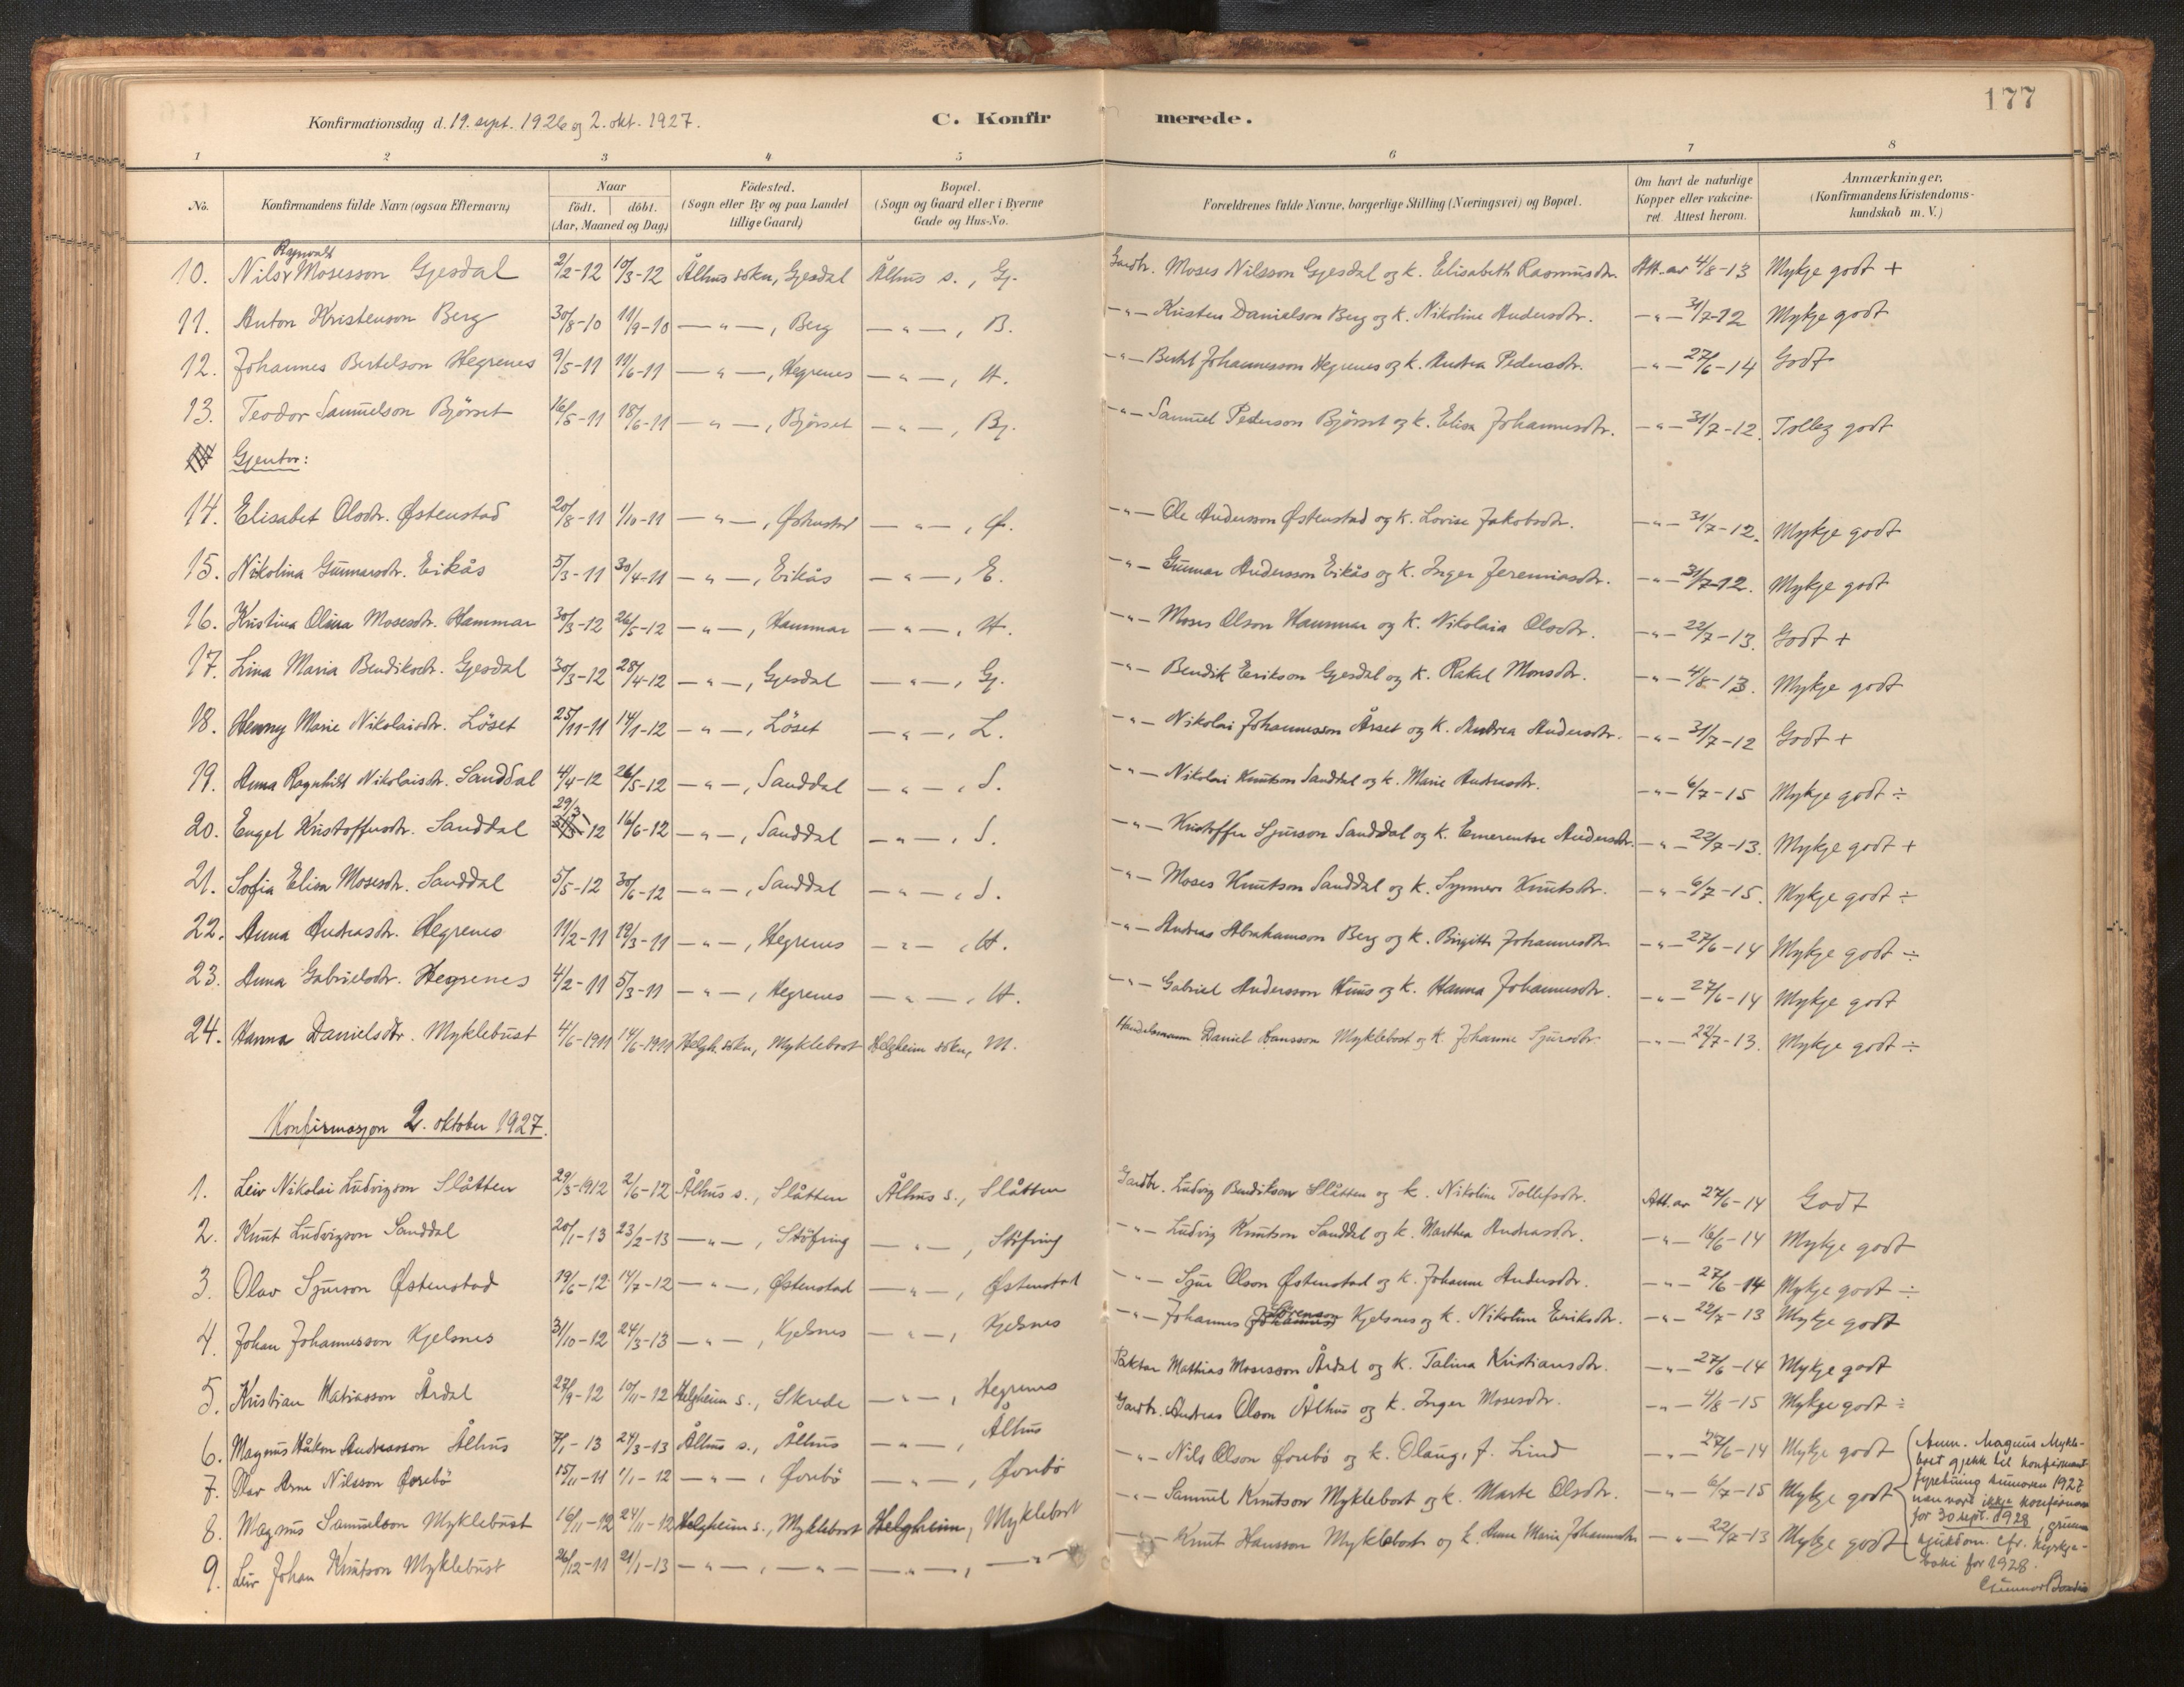 177
Konfirmationsdag d. 19. sept. 1926 og 2. okt. 1927.
C. Konfirmerede.
1 2 3 4 5 6 7 8
No. Konfirmandens fulde Navn (ogsaa Efternavn) Naar født. døbt. (Aar, Maaned og Dag) Fødested. (Sogn eller By og paa Landet tillige Gaard) Bopæl. (Sogn og Gaard eller i Byerne Gade og Hus-No. Forældrenes fulde Navne, borgerlige Stilling (Næringsvei) og Bopæl. Om havt de naturlige Kopper eller vakcineret. Attest herom. Anmærkninger. (Konfirmandens Kristendomskundskab m. V.)
10. Nils Mosesson Gjesdal 2/2-12 10/3-12 Ålhus sokn, Gjesdal Ålhus s., Gj. Gardbr. Moses Nilsson Gjesdal og k. Elisabeth Rasmusdtr. Att. av 4/8-13 Mykje godt +
11. Anton Kristenson Berg 30/8-10 11/9-10 —"—, Berg —"—, B. —"— Kristen Danielson Berg og k. Nikoline Andersdtr. —"— 31/7-12 Mykje godt
12. Johannes Bertelson Hegrenes 9/5-11 11/6-11 —"—, Hegrenes —"—, H. —"— Bertel Johannesson Hegrenes og k. Andrea Pedersdtr. —"— 27/6-14 Godt
13. Teodor Samuelson Bjørset 16/5-11 18/6-11 —"—, Bjørset —"—, Bj. —"— Samuel Pederson Bjørset og k. Elisa Johannesdtr. —"— 31/7-12. Tolleg godt
Gjentor:
14. Elisabet Olsdtr. Østenstad 20/8-11 1/10-11 —"—, Østenstad —"—, Ø. —"— Ole Andersson Østenstad og k. Lovise Jakobsdtr. —"— 31/7-12. Mykje godt
15. Nikolina Gunnarsdtr. Eikås 5/3-11 30/4-11 —"—, Eikås —"—, E. —"— Gunnar Andersson Eikås og k. Inger Jeremiasdtr. —"— 31/7-12. Mykje godt
16. Kristina Olina Mosesdtr. Hammar 30/3-12 26/5-12 —"—, Hammar —"—, H. —"— Moses Olson Hammar og k. Nikolaia Olsdtr. —"— 22/7-13. Godt +
17. Lina Maria Bendiksdtr. Gjesdal 30/3-12 28/4-12 —"—, Gjesdal —"—, Gj. —"— Bendik Erikson Gjesdal og k. Rakel Monsdtr. —"— 4/8-13. Mykje godt
18. Henny Marie Nikolaisdtr. Löset 25/11-11 14/1-12 —"—, Löset —"—, L. —"— Nikolai Johannesson Årset og k. Andrea Andersdtr. —"— 31/7-12 Godt +
19. Anna Ragnhild Nikolaisdtr. Sanddal 4/4-12 26/5-12 —"—, Sanddal —"—, S. —"— Nikolai Knutson Sanddal og k. Marie Andreasdtr. —"— 6/7-15 Mykje godt ÷
20. Engel Kristoffersdtr. Sanddal 29/3-12 16/6-12 —"—, Sanddal —"—, S. —"— Kristoffer Sjurson Sanddal og k. Emerentse Andersdtr. —"— 22/7-13. Mykje godt +
21. Sofia Elisa Mosesdtr. Sanddal 5/5-12 30/6-12 —"—, Sanddal —"—, S. —"— Moses Knutson Sanddal og k. Synneve Knutsdtr. —"— 6/7-15. Mykje godt ÷
22. Anna Andreasdtr. Hegrenes 11/2-11 19/3-11 —"—, Hegrenes —"—, H. —"— Andreas Abrahamson Berg og k. Birgitte Johannesdtr. —"— 27/6-14 Mykje godt ÷
23. Anna Gabrielsdtr. Hegrenes 4/2-11 5/3-11 —"—, Hegrenes —"—, H. —"— Gabriel Andersson Huus og k. Hanna Johannesdtr. —"— 27/6-14 Mykje godt
24. Hanna Danielsdtr. Myklebust 4/6-1911 14/6-1911 Helgh. sokn, Myklebost Helgheim sokn, M. Handelsmann Daniel Hansson Myklebost og k. Johanne Sjursdtr. —"— 22/7-13. Mykje godt ÷
Konfirmasjon 2. oktober 1927.
1. Leiv Nikolai Ludvigson Slåtten 29/3-1912 2/6-12 Ålhus s., Slåtten Ålhus s., Slåtten Gardbr. Ludvig Bendikson Slåtten og k. Nikoline Tollefsdtr. Att. av 27/6-14 Godt
2. Knut Ludvigson Sanddal 20/1-13 23/2-13 —"—, Støfring —"—, Støfring —"— Ludvig Knutson Sanddal og k. Marthea Andreasdtr. —"— 16/6-14 Mykje godt
3. Olav Sjurson Østenstad 19/6-12 14/7-12 —"—, Østenstad —"—, Østenstad —"— Sjur Olson Østenstad og k. Johanne Andersdtr. —"— 27/6-14 Mykje godt ÷
4. Johan Johannesson Kjelsnes 31/10-12 24/3-13 —"—, Kjelsnes —"—, Kjelsnes —"— Johannes Sørenson Kjelsnes og k. Nikoline Eriksdtr. —"— 22/7-13 Mykje godt
5. Kristian Matiasson Årdal 27/9-12 10/11-12 Helgheim s., Skrede —"—, Hegrenes Paktar Mathias Mosesson Årdal og k. Talina Kristiansdtr. —"— 27/6-14 Mykje godt
6. Magnus Håkon Andreasson Ålhus 7/1-13 24/3-13 Ålhus s., Ålhus —"—, Ålhus Gardbr. Andreas Olson Ålhus og k. Inger Mosesdtr. —"— 4/8-15 Mykje godt ÷
7. Olav Arne Nilsson Øvrebö 15/11-11 1/1-12 —"—, Øvrebö —"—, Øvrebö —"— Nils Olson Øvrebö og k. Olaug, f. Lind —"— 27/6-14 Mykje godt
8. Magnus Samuelson Myklebust 16/11-12 24/11-12 Helgheim s., Myklebost Helgheim, Myklebost —"— Samuel Knutson Myklebost og k. Marte Olsdtr. —"— 6/7-15 Mykje godt
9. Leiv Johan Knutson Myklebust 26/12-11 21/1-13 —"—, —"— —"—, —"— —"— Knut Hansson Myklebost og k. Anne Marie Johannesdtr. —"— 22/7-13 Mykje godt
Anm. Magnus Myklebost gjekk til konfirmant
fyrebuing 1927
men vart ikkje konfirmer
for 30 sept. 1928, grunna
sjukdom. Cfr. kyrkje-
boki for 1928.
Gunnar